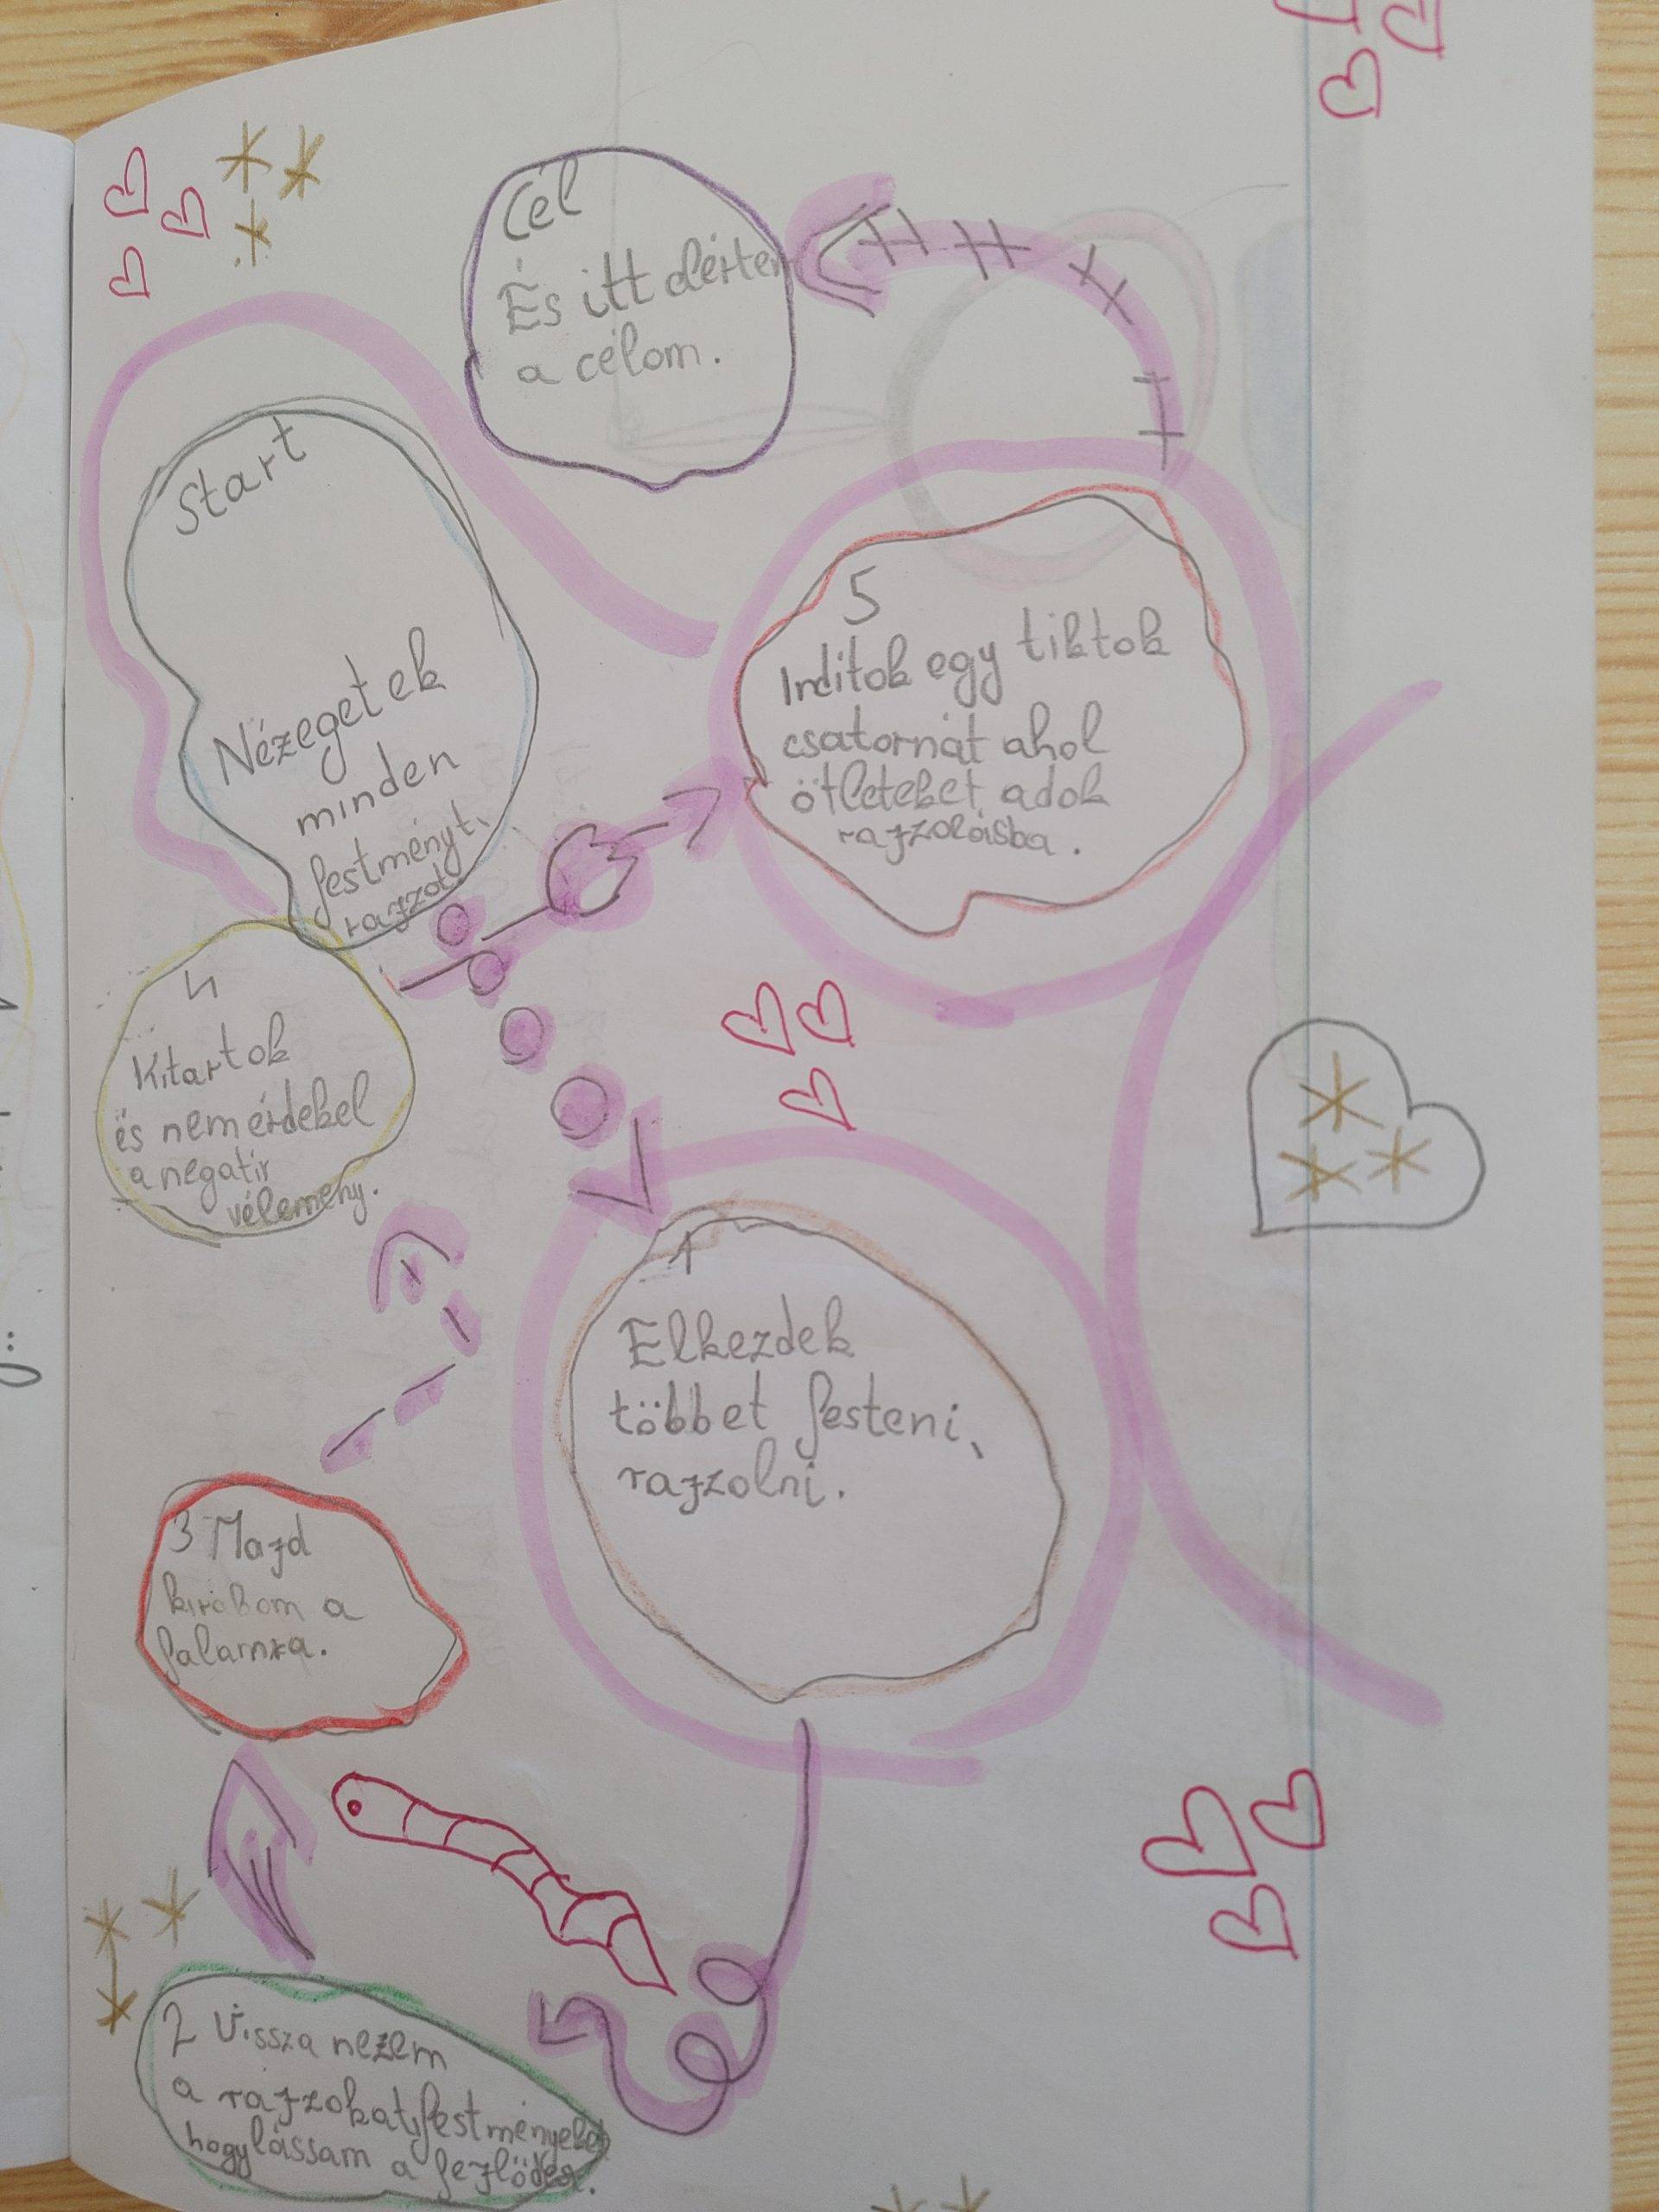 Start
Nézegetek
minden
festményt,
rajzot
1
Elkezdek
többet festeni,
rajzolni.
2 Vissza nezem
a rajzokat, festményeket
hogy lássam a fejlődést.
3 Majd
kirakom a
falamra.
4
Kitartok
és nem érdekel
a negatív
vélemény.
5
Inditok egy tiktok
csatornát ahol
ötleteket adok
rajzolásba.
Cél
És itt elértem
a célom.